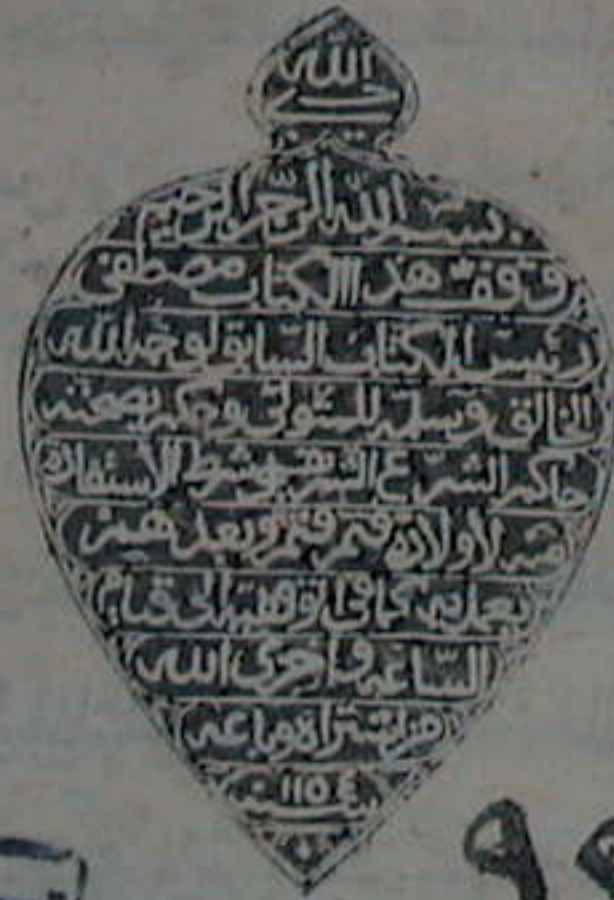 الله
حي
بسم الله الرحمن الرحيم
وقف هذا الكتاب مصطفى
رئيس الكتاب السابق لوجه الله
الخالق وسلمه للمتولي وحكم بصحته
حاكم الشرع الشريف وشرط الاستفادة
منه لأولاده ثم وبعدهم
يعمل به كما في الى قيام
الساعة وأخزى الله
من اشتراه وباعه
سنة ١١٥٤